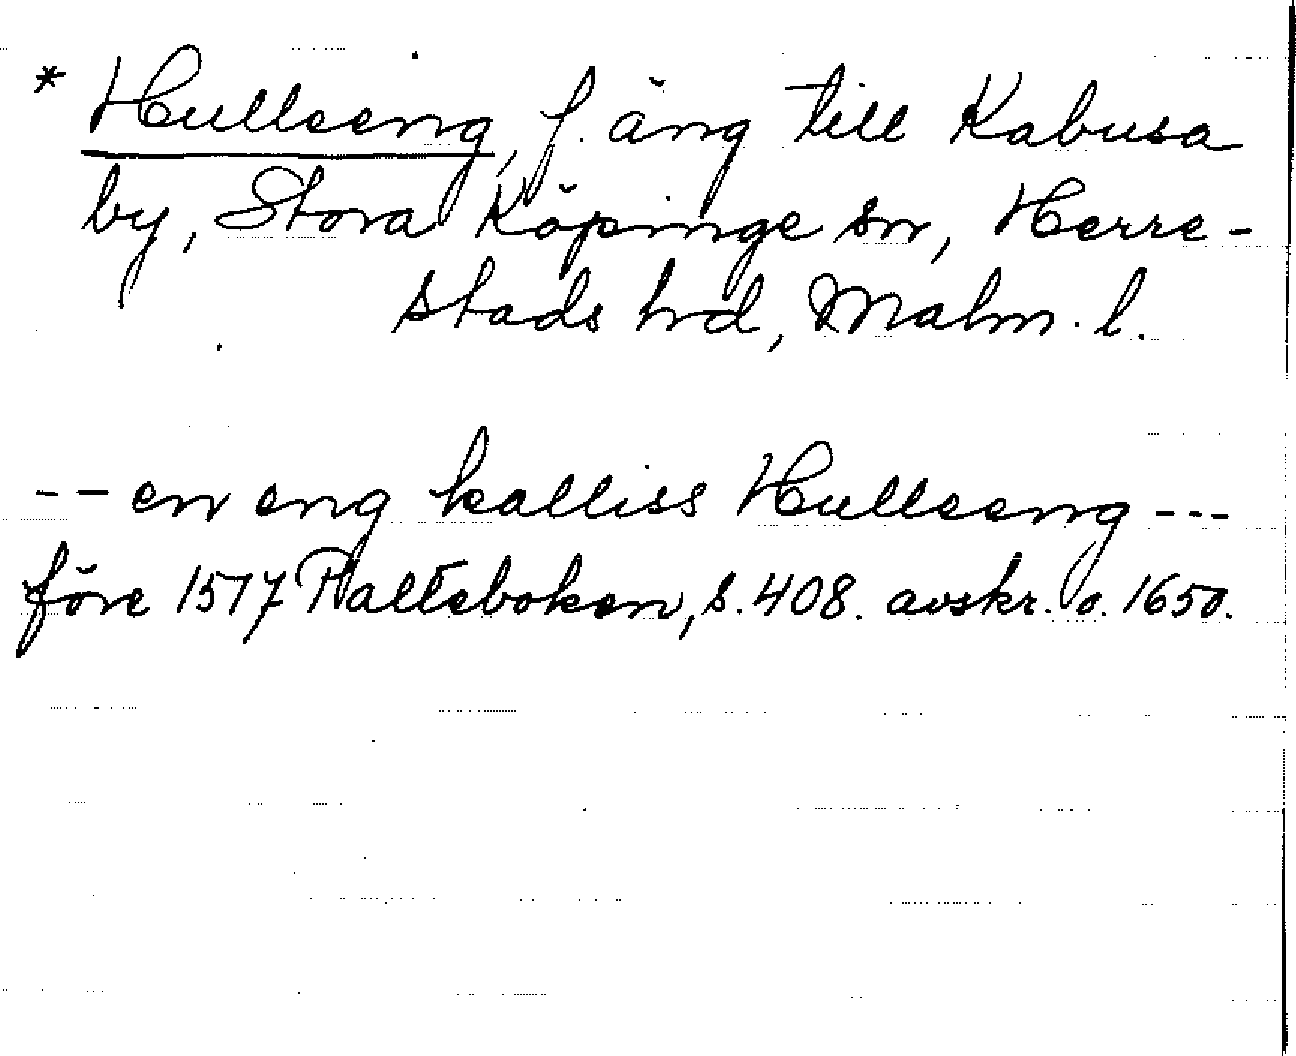 * Hulleeng, f. äng till Kabusa
by, Stora Köpinge sn, Herre-
stads hrd, Malm. l.
-- en eng kalliss Hulleeng ---
före 1517 Palteboken, s. 408. avskr. o. 1650.